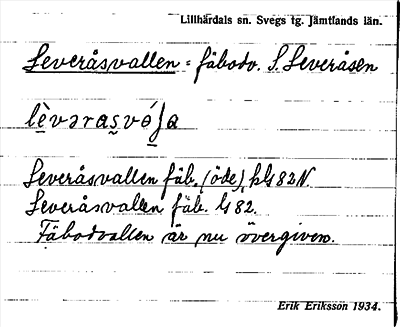 Lillhärdals sn. Svegs tg. Jämtlands län.
Leveråsvallen = fäbodv. S. Leveråsen
lèvərasvóʃa
Leveråsvallen fäb. (öde), hls 82 N.
Leveråsvallen fäb. ls 82.
Fäbodvallen är nu övergiven.
Erik Eriksson 1934.